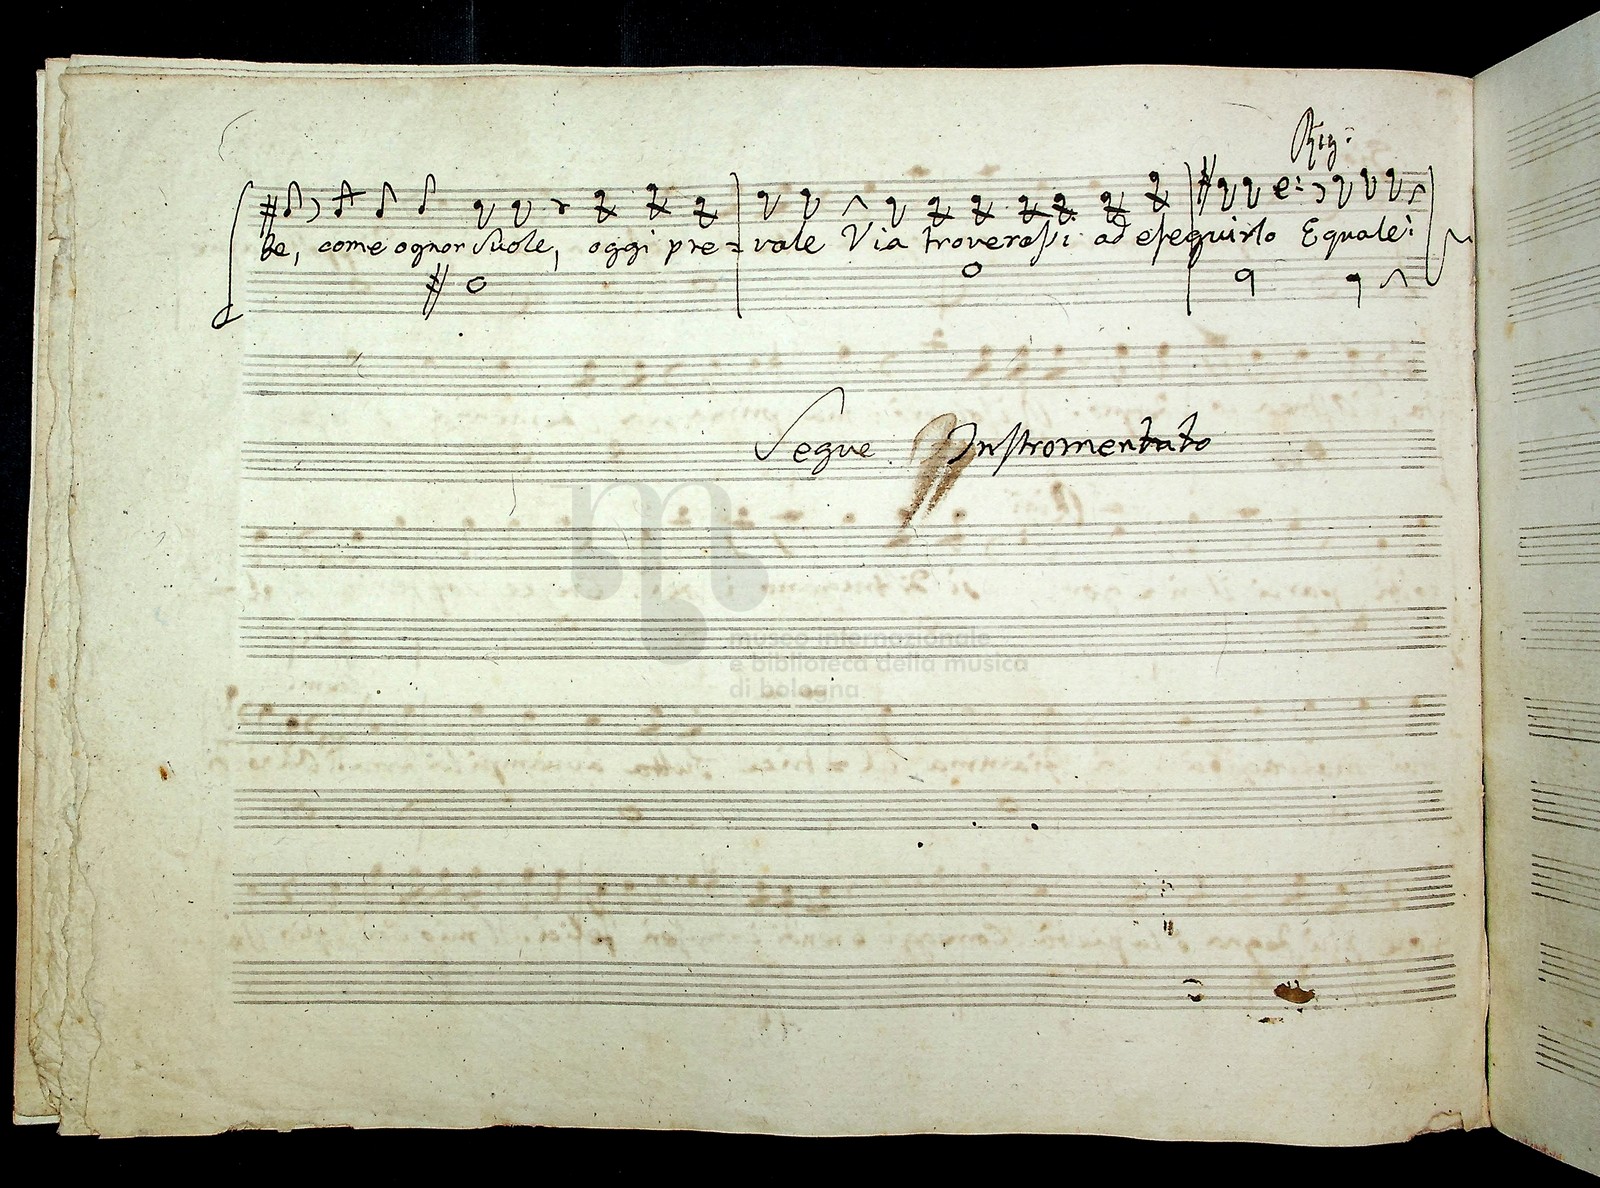 Rig:
be, come ognor suole, oggi pre= vale Via troverassi ad eseguirlo Eguale:
Segue Instromentato
museo internazionale
e biblioteca della musica
di bologna